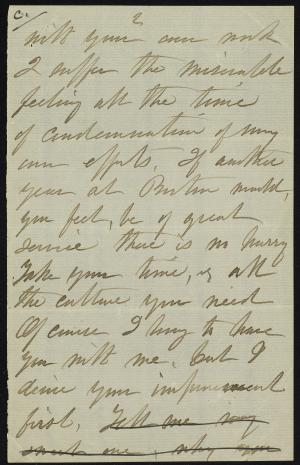 2
with your own work
I suffer the miserable
feeling all the time
of condemnation of my
own efforts. If another
year at Boston would,
you feel, be of great
service there is no hurry
Take your time, & all
the culture you need
Of course I long to have
you with me, but I
desire your improvement
first. Tell me my
sweet one, why you